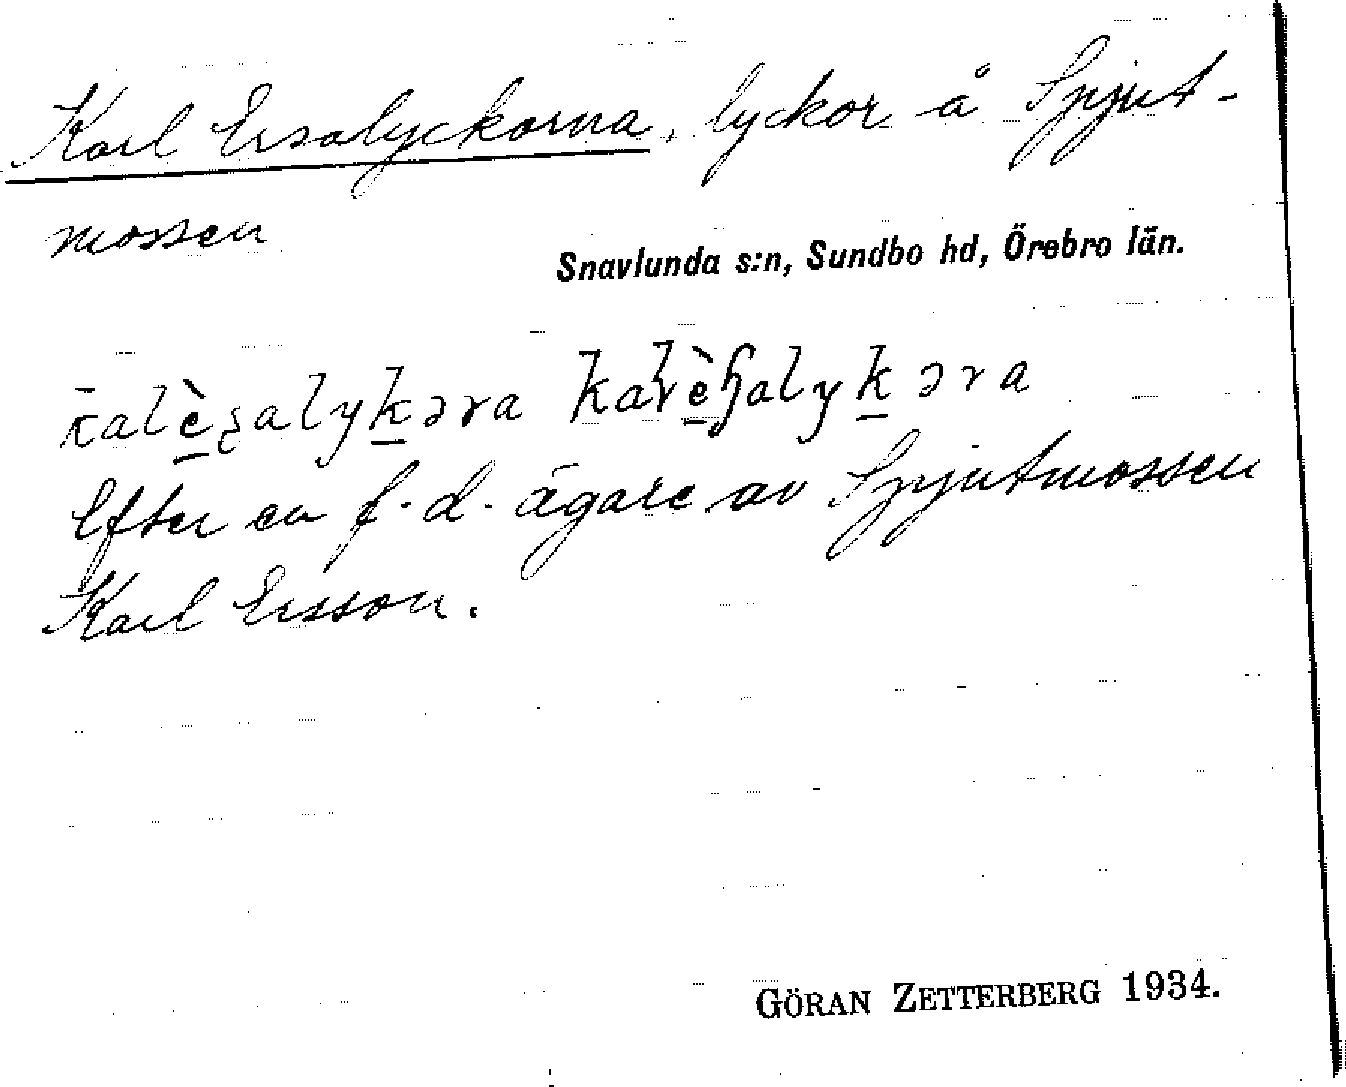 Karl Ersalyckorna, lyckor å Spjut-
mossen
Snavlunda s:n, Sundbo hd, Örebro län.
Efter en f.d. ägare av Spjutmossen
Karl Ersson.
GÖRAN ZETTERBERG 1934.